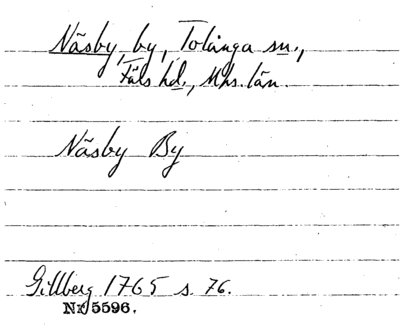 Näsby, by, Tolånga sn.,
Färs hd., Mhs. län.
Näsby By
Gillberg 1765 s. 76.
Nr 5596.